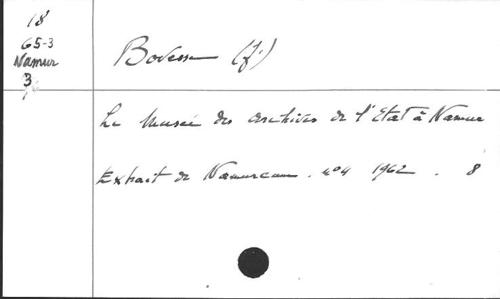 18
65-3
Namur
3
Bovesse (J.)
Le Musée des archives de l'Etat à Namur
Extrait de Namurcum. n°4 1962. 8